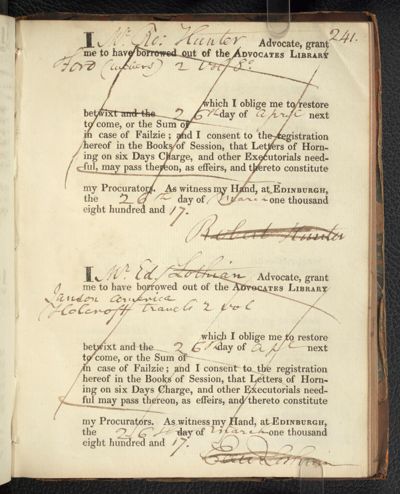 241.
I Mr. Ro: Hunter Advocate, grant
me to have borrowed out of the ADVOCATES LIBRARY
Ford 2 vol 8o
which I oblige me to restore
betwixt and the 26th day of April next
to come, or the Sum of
in case of Failzie; and I consent to the registration
hereof in the Books of Session, that Letters of Horn-
ing on six Days Charge, and other Executorials need-
ful, may pass thereon, as effeirs, and thereto constitute
my Procurators. As witness my Hand, at EDINBURGH,
the 26th day of March one thousand
eight hundred and 17.
Robert Hunter
I Mr. Ed. Lothian Advocate, grant
me to have borrowed out of the ADVOCATES LIBRARY
Janson America
Holcroft travels 2 vol
which I oblige me to restore
betwixt and the 26th day of Apl next
to come, or the Sum of
in case of Failzie; and I consent to the registration
hereof in the Books of Session, that Letters of Horn-
ing on six Days Charge, and other Executorials need-
ful, may pass thereon, as effeirs, and thereto constitute
my Procurators. As witness my Hand, at EDINBURGH,
the 26th day of March one thousand
eight hundred and 17.
Lothian